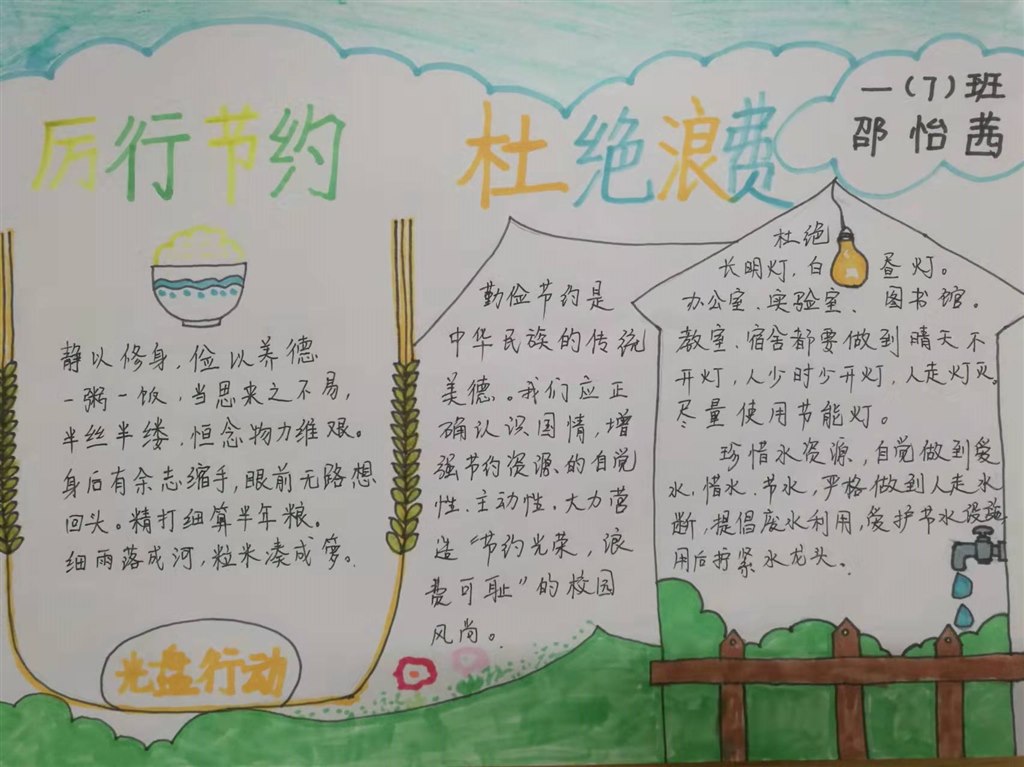 厉行节约 杜绝浪费
一(7)班
邵怡茜
静以修身,俭以养德
一粥一饭,当思来之不易,
半丝半缕,恒念物力维艰。
身后有余志缩手,眼前无路想
回头。精打细算半年粮。
细雨落成河,粒米凑成箩。
光盘行动
勤俭节约是
中华民族的传统
美德。我们应正
确认识国情,增
强节约资源的自觉
性、主动性。大力营
造“节约光荣,浪
费可耻”的校园
风尚。
杜绝
长明灯,白昼灯。
办公室、实验室、图书馆。
教室、宿舍都要做到晴天不
开灯,人少时少开灯,人走灯灭。
尽量使用节能灯。
珍惜水资源,自觉做到爱
水、惜水、节水,严格做到人走水
断,提倡废水利用,爱护节水设施
用后拧紧水龙头。